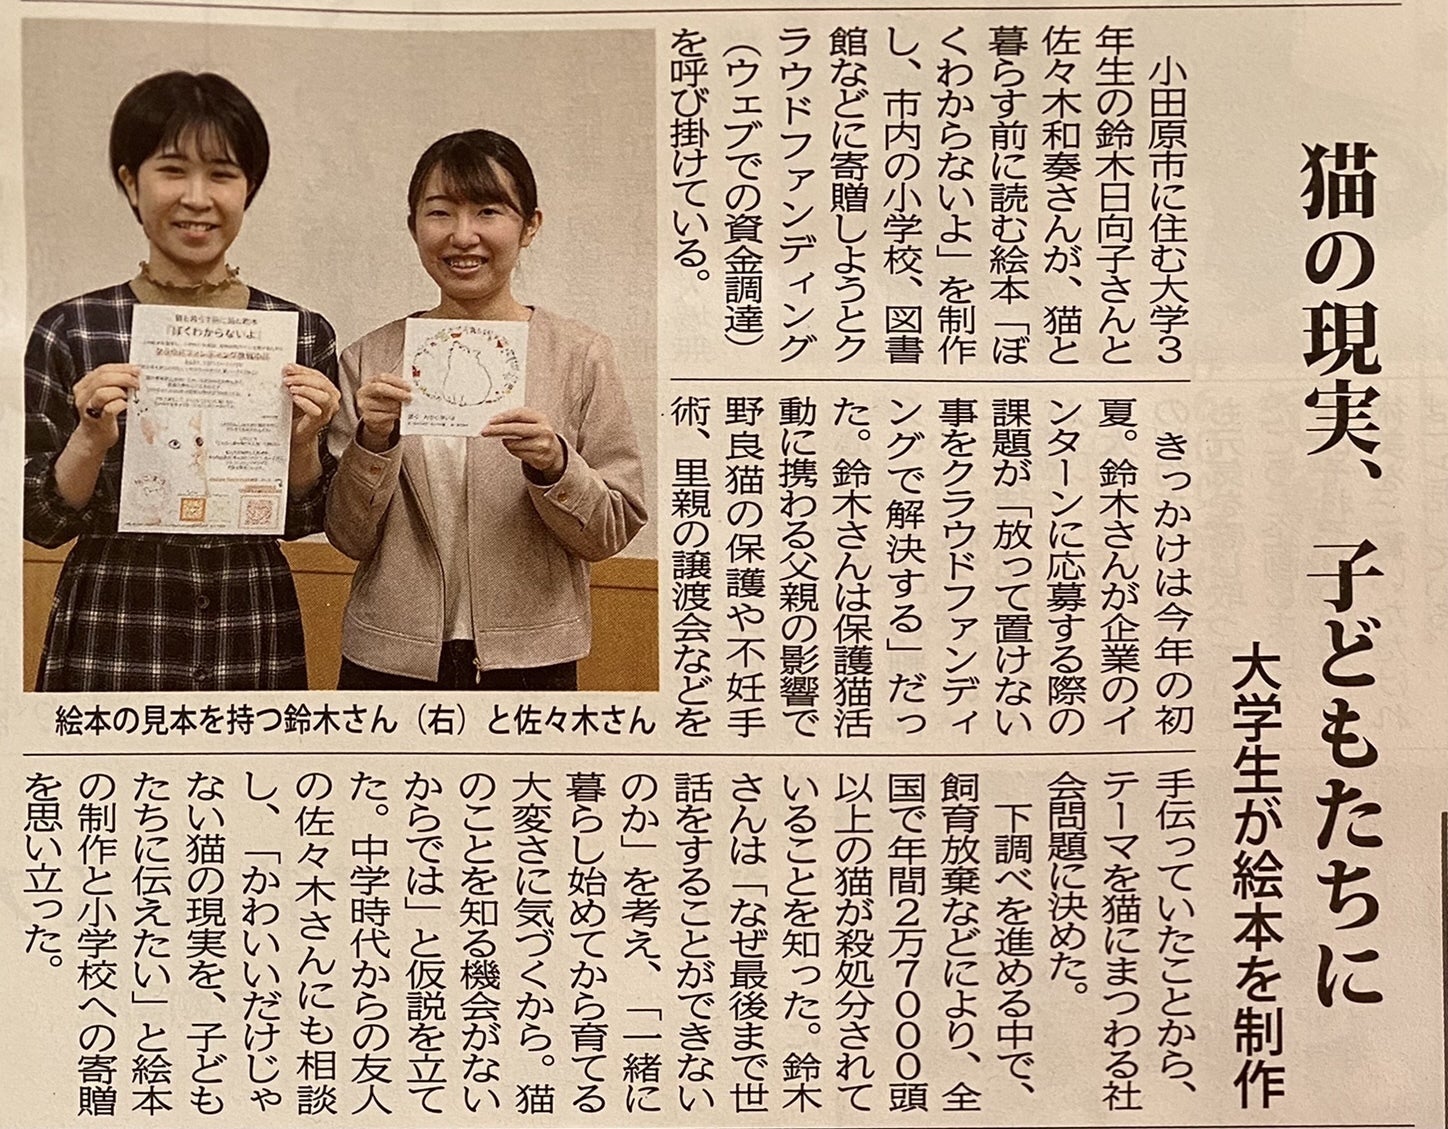 猫の現実、子どもたちに
大学生が絵本を制作
小田原市に住む大学3
年生の鈴木日向子さんと
佐々木和奏さんが、猫と
暮らす前に読む絵本「ぼ
くわからないよ」を制作
し、市内の小学校、図書
館などに寄贈しようとク
ラウドファンディング
(ウェブでの資金調達)
を呼び掛けている。
きっかけは今年の初
夏。鈴木さんが企業のイ
ンターンに応募する際の
課題が「放って置けない
事をクラウドファンディ
ングで解決する」だっ
た。鈴木さんは保護猫活
動に携わる父親の影響で
野良猫の保護や不妊手
術、里親の譲渡会などを
手伝っていたことから、
テーマを猫にまつわる社
会問題に決めた。
下調べを進める中で、
飼育放棄などにより、全
国で年間2万7000頭
以上の猫が殺処分されて
いることを知った。鈴木
さんは「なぜ最後まで世
話をすることができない
のか」を考え、「一緒に
暮らし始めてから育てる
大変さに気づくから。猫
のことを知る機会がない
からでは」と仮説を立て
た。中学時代からの友人
の佐々木さんにも相談
し、「かわいいだけじゃ
ない猫の現実を、子ども
たちに伝えたい」と絵本
の制作と小学校への寄贈
を思い立った。
絵本の見本を持つ鈴木さん(右)と佐々木さん
『ぼくわからないよ』